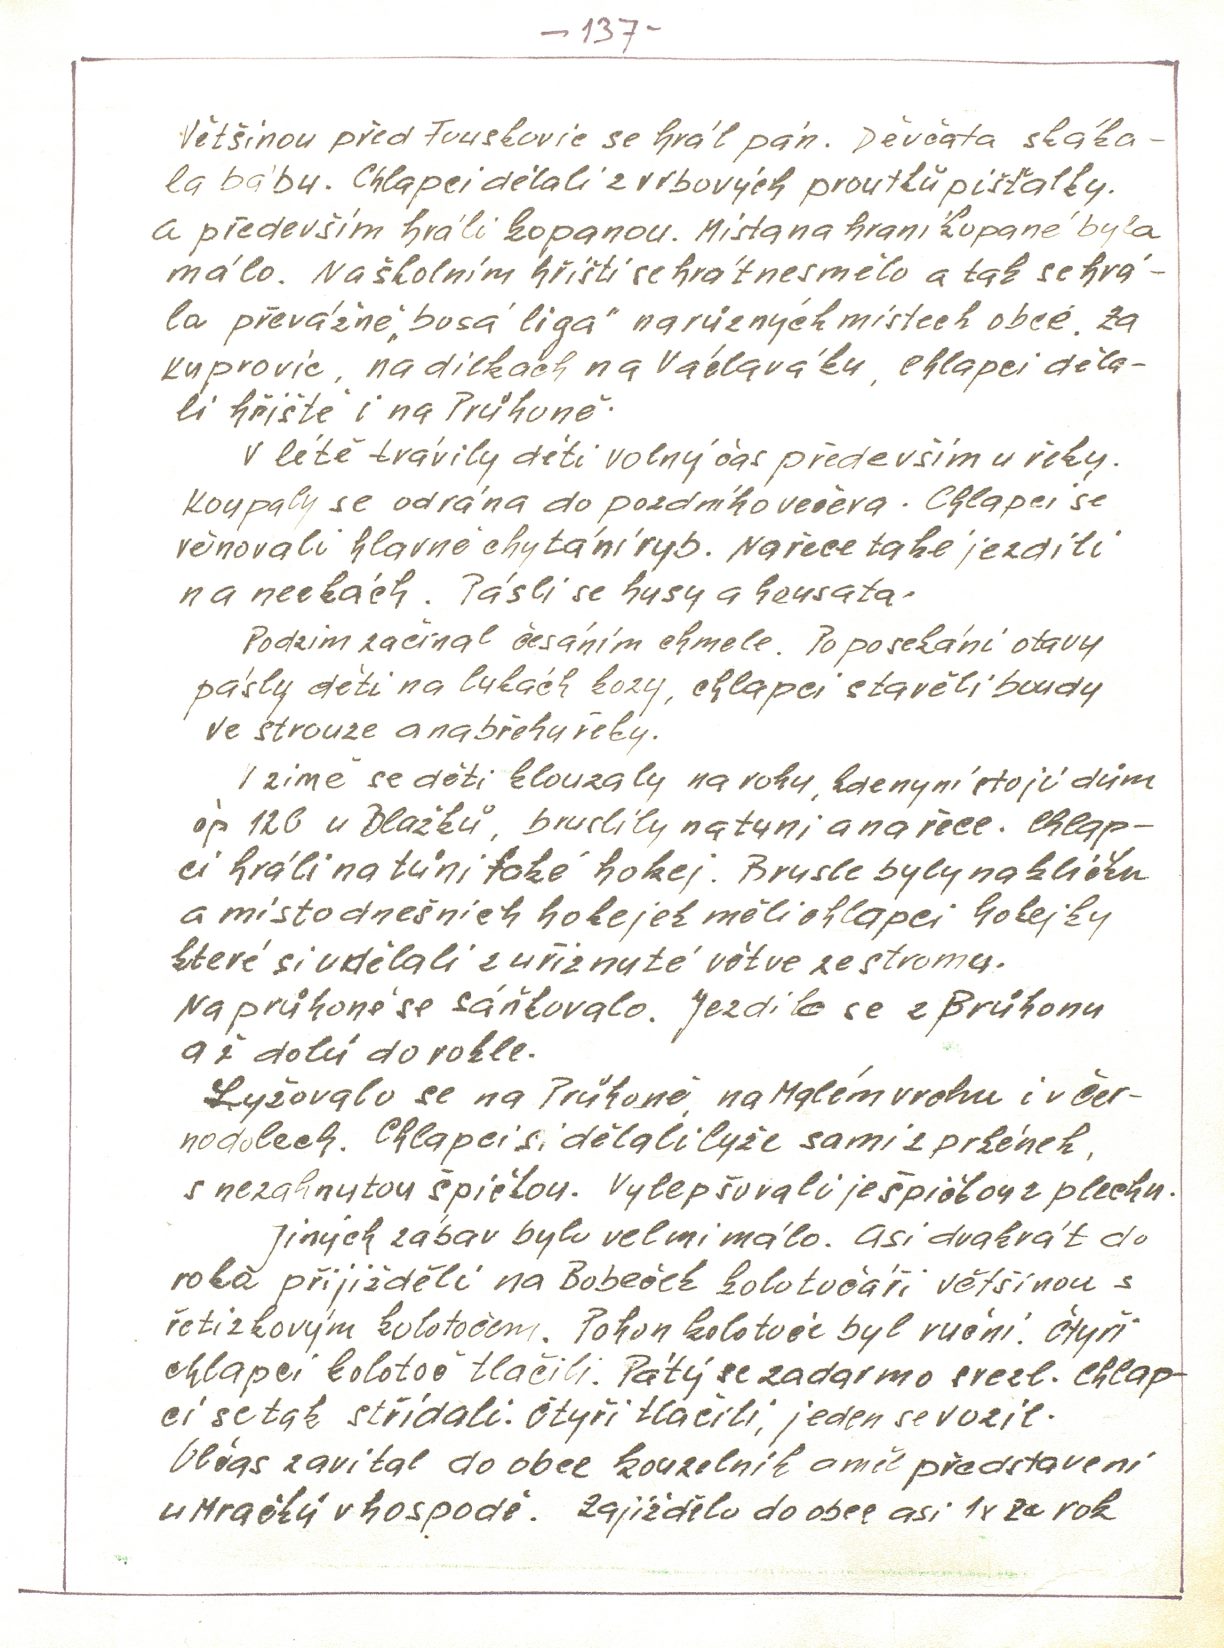 - 137 -
Většinou před Fouskovic se hrál pán. Děvčata skáka-
la bábu. Chlapci dělali z vrbových proutků píšťalky.
a především hráli kopanou. Místa na hraní kopané byla
málo. Na školním hřišti se hrát nesmělo a tak se hrá-
la převážně „bosá liga" na různých místech obcé. Za
Kuprovic, na dílkách na Václaváku, chlapci děla-
li hřiště i na Průhoně.
V létě trávily děti volný čas především u řeky.
Koupaly se od rána do pozdního večera. Chlapci se
věnovali hlavně chytání ryb. Na řece také jezdili
na neckách. Pásli se husy a housata.
Podzim začínal česáním chmele. Po posekání otavy
pásly děti na lukách kozy, chlapci stavěli boudy
ve strouze a na břehu řeky.
V zimě se děti klouzaly na rohu, kde nyní stojí dům
čp 126 u Blažků, bruslily na tuni a na řece. Chlap-
ci hráli na tůni také hokej. Brusle byly na kličku
a místo dnešních hokejek měli chlapci hokejky
které si udělali z uříznuté větve ze stromu.
Na průhoně se sáňkovalo. Jezdilo se z Průhonu
až dolů do rokle.
Lyžovalo se na Průhoně, na Malém vrchu i v Čer-
nodolech. Chlapci si dělali lyže sami z prkének,
s nezahnutou špičkou. Vylepšovali je špičkou z plechu.
Jiných zábav bylo velmi málo. Asi dvakrát do
roka přijížděli na Bobeček kolotočáři většinou s
řetízkovým kolotočem. Pohon kolotoče byl ruční. Čtyři
chlapci kolotoč tlačili. Pátý se zadarmo svezl. Chlap-
ci se tak střídali. Čtyři tlačili, jeden se vozil.
Občas zavítal do obce kouzelník a měl představení
u Mračků v hospodě. Zajíždělo do obce asi 1x za rok